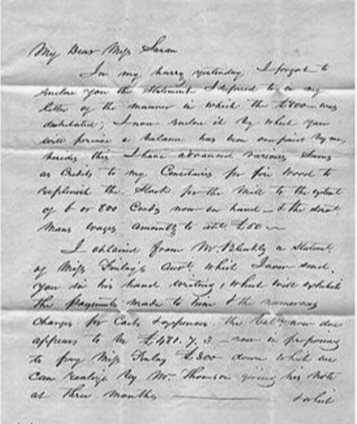 My Dear Miss Sarah
In my hurry yesterday I forgot to
enclose you the Statement I referred to in my
letter of the manner in which the £800 was
distributed; I now enclose it by which you
will perceive a balance has been overpaid by me,
besides this I have advanced various Sums
as Credits to my for fire Wood to
replenish the Stock for the Mill to the extent
of 6 or 800 Cords now on hand &
Mans wages amounts to £50 —
I obtained from Mr a Statement
of Miss Finlay's which I now send
you in his hand writing, which will exhibit
the payments made to him & the numerous
charges for Costs & expenses the now due
appears to be £481.7.3 now in proposing
to pay Miss Finlay £300 down which we
can realize by Mr. Thomson giving his Note
at three months